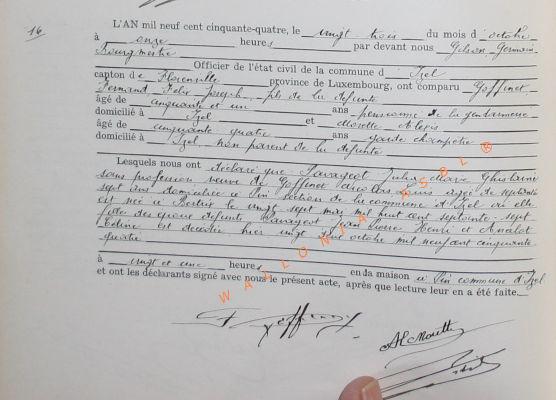 16
L'AN mil neuf cent cinquante-quatre, le vingt trois du mois d'octobre
à onze heures par devant nous Gilson Germain
Bourgmestre
Officier de l'état civil de la commune d'Izel
canton de Florenville province de Luxembourg, ont comparu Goffinet
Fernand Felix Joseph fils de la defunte
âgé de cinquante et un ans pensionné de la gendarmerie
domicilié à Izel et Alexis
âgé de cinquante quatre ans garde champêtre
domicilié à Izel non parent de la défunte
Lesquels nous ont déclaré que Julie Marie Ghislaine
sans profession veuve de Goffinet Louis agée de septante
sept ans domiciliée à Pin section de la commune d'Izel où elle
est née à Bertrix le vingt sept mai mil huit cent septante-sept
fille des époux défunts Jean Pierre Henri et
est décédée hier vingt octobre mil neuf cent cinquante
quatre
à vingt et une heures en da maison à Pin commune d'Izel
et ont les déclarants signé avec nous le présent acte, après que lecture leur en a été faite.
WALLONIA ASBL ®